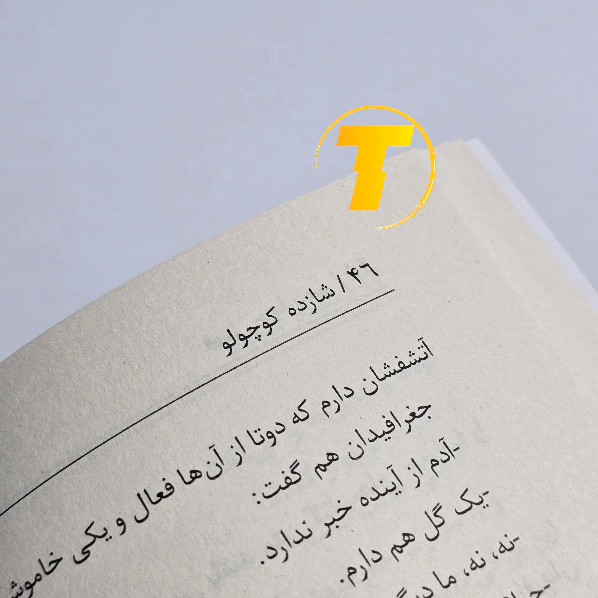 T
۴۶ / شازده کوچولو
آتشفشان دارم که دوتا از آن‌ها فعال و یکی
جغرافیدان هم گفت:
-آدم از آینده خبر ندارد.
-یک گل هم دارم.
-نه، نه، ما